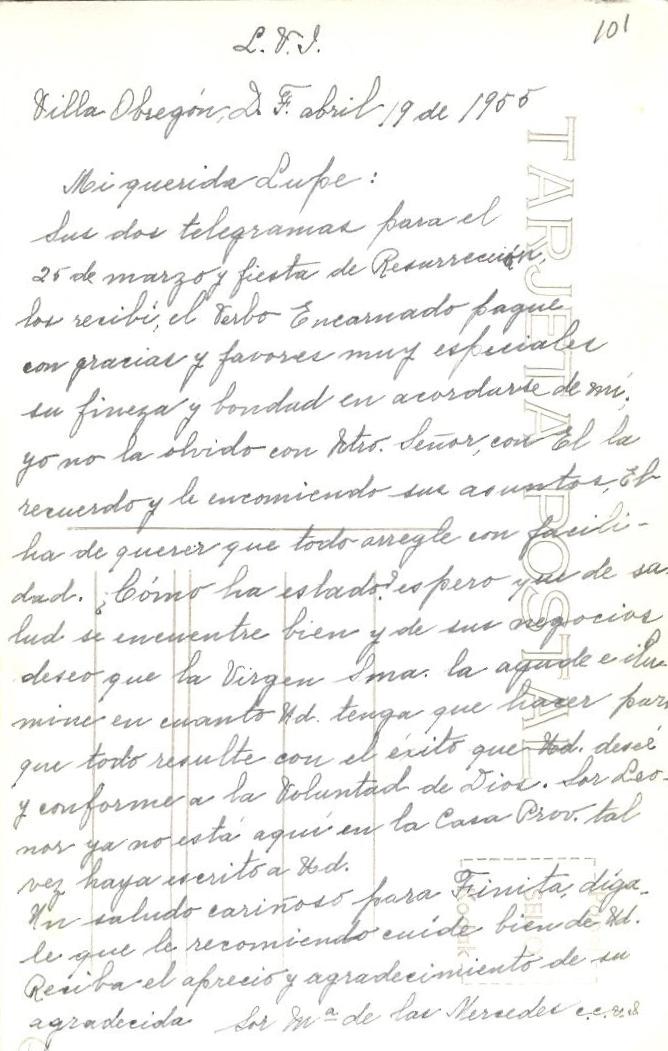 101
L. V. I.
Villa Obregón, D. F. abril 19 de 1955
Mi querida Lupe:
Sus dos telegramas para el
25 de marzo y fiesta de Resurrección,
los recibí, el Verbo Encarnado pague
con gracias y favores muy especiales
su fineza y bondad en acordarse de mí,
yo no la olvido con Ntro. Señor, con El la
recuerdo y le encomiendo sus asuntos, El
ha de querer que todo arregle con facili-
dad. ¿Cómo ha estado? espero que de sa-
lud se encuentre bien y de sus negocios
deseo que la Virgen Sma. la ayude e ilu-
mine en cuanto Ud. tenga que hacer para
que todo resulte con el éxito que Ud. desee
y conforme a la Voluntad de Dios. Sor Leo-
nor ya no está aquí en la Casa Prov. tal
vez haya escrito a Ud.
Un saludo cariñoso para Finita, díga-
le que le recomiendo cuide bien de Ud.
Reciba el aprecio y agradecimiento de su
agradecida Sor Mª de las Mercedes c.c.v.i
TARJETA POSTAL
SELLO
Kodak